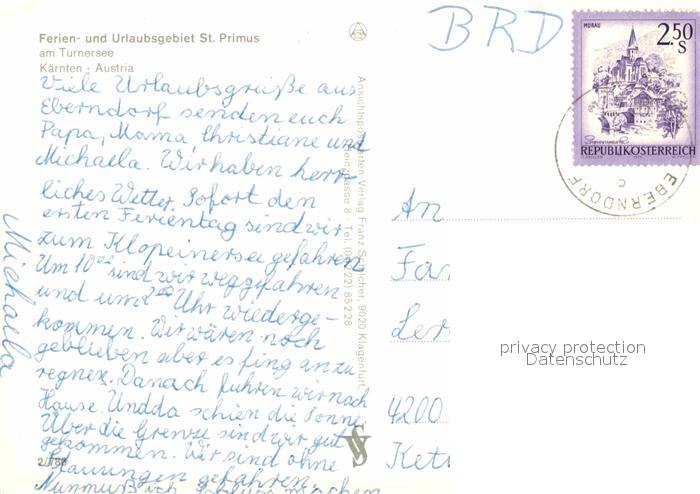 Ferien- und Urlaubsgebiet St. Primus
am Turnersee
Kärnten - Austria
Viele Urlaubsgrüße aus
Eberndorf senden euch
Papa, Mama, Christiane und
Michaela. Wir haben herr-
liches Wetter. Sofort den
ersten Ferientag sind wir
zum Klopeinersee gefahren
Um 10⁰⁰ sind wir weggefahren
und um 2⁰⁰ Uhr wiederge-
kommen. Wir wären noch
geblieben aber es fing an zu
regnen. Danach fuhren wir nach
Hause. Und da schien die Sonne
Über die Grenze sind wir gut
gekommen. Wir sind ohne
Stauungen gefahren.
Nun muß ich Schluss machen
Michaela
2/788
Ansichtspostkarten-Verlag Franz
9020 Klagenfurt,
8 - Tel. (04222) 85228
BRD
MURAU
2.50
S
REPUBLIK ÖSTERREICH
EBERNDORF
c
An
Fa
Ler
4200
Ket
privacy protection
Datenschutz